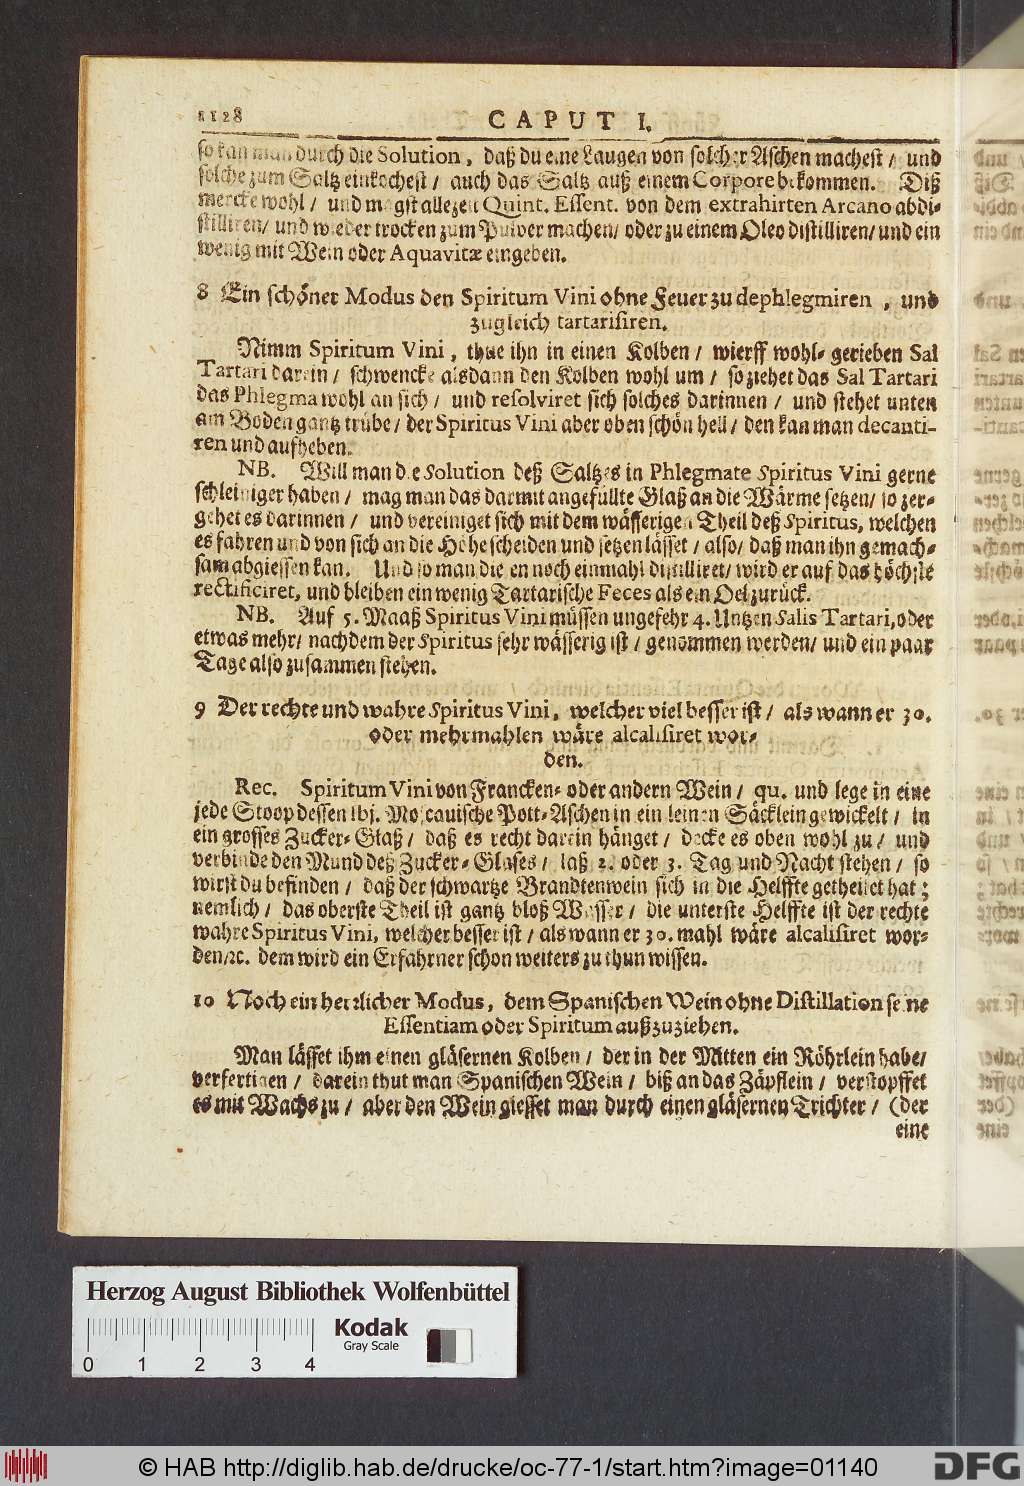 1128
CAPUT I.
so kan man durch die Solution, daß du eine Laugen von solcher Aschen machest / und
solche zum Saltz einkochest / auch das Saltz auß einem Corpore bekommen. Diß
mercke wohl / und magst allezeit Quint. Essent. von dem extrahirten Arcano abdi-
stilliren / und wieder trocken zum Pulver machen / oder zu einem Oleo distilliren / und ein
wenig mit Wein oder Aquavitæ eingeben.
8 Ein schöner Modus den Spiritum Vini ohne Feuer zu dephlegmiren, und
zugleich tartarisiren.
Nimm Spiritum Vini, thue ihn in einen Kolben / wierff wohl-gerieben Sal
Tartari darein / schwencke alsdann den Kolben wohl um / so ziehet das Sal Tartari
das Phlegma wohl an sich / und resolviret sich solches darinnen / und stehet unten
am Boden gantz trübe / der Spiritus Vini aber oben schön hell / den kan man decanti-
ren und aufheben.
NB. Will man die Solution deß Saltzes in Phlegmate Spiritus Vini gerne
schleiniger haben / mag man das darmit angefüllte Glaß an die Wärme setzen / so zer-
gehet es darinnen / und vereiniget sich mit dem wässerigen Theil deß Spiritus, welchen
es fahren und von sich an die Höhe scheiden und setzen lässet / also / daß man ihn gemach-
sam abgiessen kan. Und so man dieen noch einmahl distilliret / wird er auf das höchste
rectificiret, und bleiben ein wenig Tartarische Feces als ein Oel zurück.
NB. Auf 5. Maaß Spiritus Vini müssen ungefehr 4. Untzen Salis Tartari, oder
etwas mehr / nachdem der Spiritus sehr wässerig ist / genommen werden / und ein paar
Tage also zusammen stehen.
9 Der rechte und wahre Spiritus Vini, welcher viel besser ist / als wann er 30.
oder mehrmahlen wäre alcalisiret wor-
den.
Rec. Spiritum Vini von Francken- oder andern Wein / qu. und lege in eine
jede Stoop dessen lbj. Moscauische Pott-Aschen in ein leinen Säcklein gewickelt / in
ein grosses Zucker-Glaß / daß es recht darein hänget / decke es oben wohl zu / und
verbinde den Mund deß Zucker-Glases / laß 2. oder 3. Tag und Nacht stehen / so
wirst du befinden / daß der schwartze Brandtenwein sich in die Helffte getheilet hat;
nemlich / das oberste Theil ist gantz bloß Wasser / die unterste Helffte ist der rechte
wahre Spiritus Vini, welcher besser ist / als wann er 30. mahl wäre alcalisiret wor-
den / ꝛc. dem wird ein Erfahrner schon weiters zu thun wissen.
10 Noch ein herrlicher Modus, dem Spanischen Wein ohne Distillation seine
Essentiam oder Spiritum außzuziehen.
Man lässet ihm einen gläsernen Kolben / der in der Mitten ein Röhrlein habe /
verfertigen / darein thut man Spanischen Wein / biß an das Zäpflein / verstopffet
es mit Wachs zu / aber den Wein giesset man durch einen gläsernen Trichter / (der
eine
Herzog August Bibliothek Wolfenbüttel
Kodak
Gray Scale
0 1 2 3 4
© HAB http://diglib.hab.de/drucke/oc-77-1/start.htm?image=01140
DFG